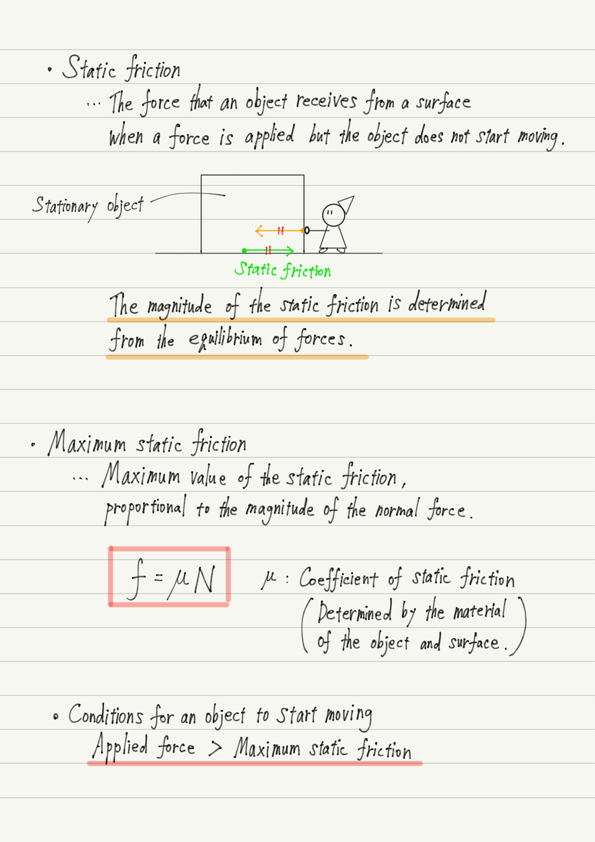 • Static friction
... The force that an object receives from a surface
when a force is applied but the object does not start moving.
Stationary object
Static friction
The magnitude of the static friction is determined
from the equilibrium of forces.
• Maximum static friction
... Maximum value of the static friction,
proportional to the magnitude of the normal force.
f = μN
μ : Coefficient of static friction
(Determined by the material
of the object and surface.)
• Conditions for an object to start moving
Applied force > Maximum static friction